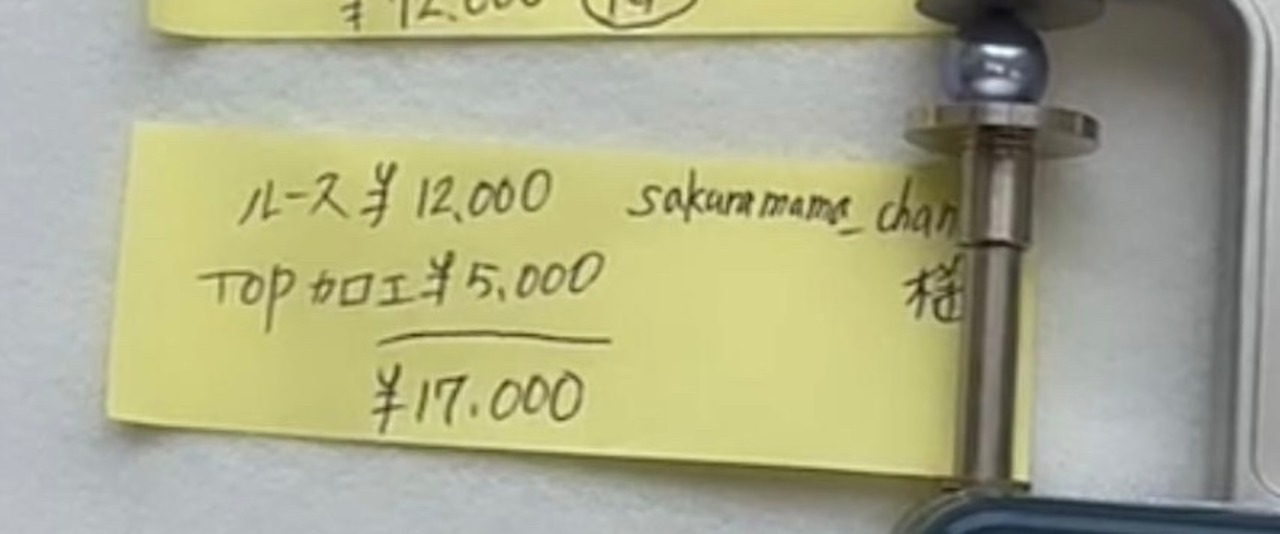 ¥12.000
ルース ¥12,000 sakuramama_chan
TOP加工 ¥5,000 様
¥17.000